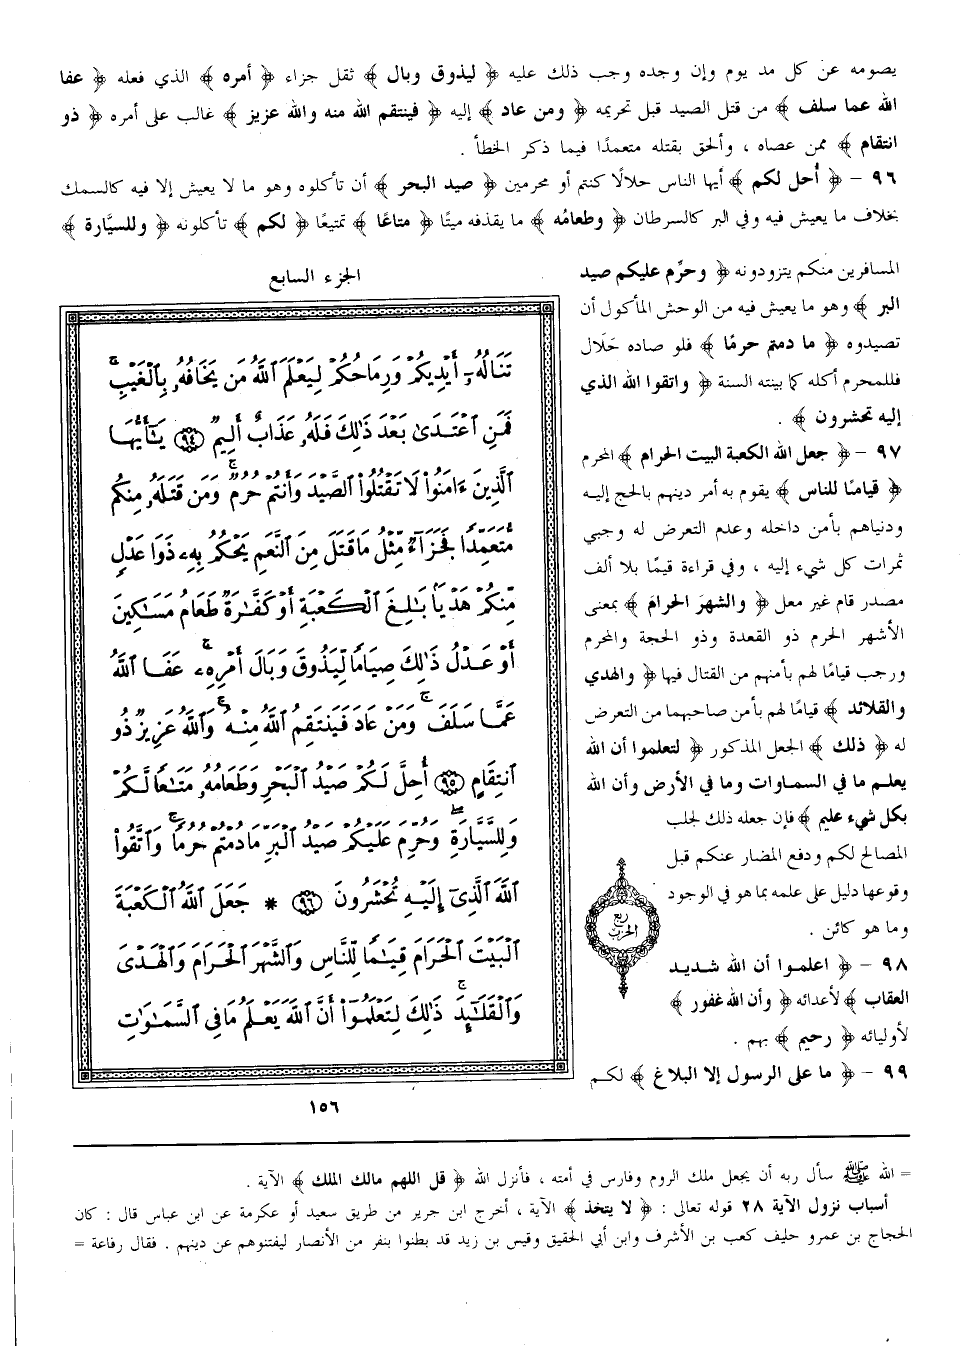 يصومه عن كل مد يوم وإن وجده وجب ذلك عليه ﴿ ليذوق وبال ﴾ ثقل جزاء ﴿ أمره ﴾ الذي فعله ﴿ عفا
الله عما سلف ﴾ من قتل الصيد قبل تحريمه ﴿ ومن عاد ﴾ إليه ﴿ فينتقم الله منه والله عزيز ﴾ غالب على أمره ﴿ ذو
انتقام ﴾ ممن عصاه ، وألحق بقتله متعمدًا فيما ذكر الخطأ .
٩٦ - ﴿ أُحل لكم ﴾ أيها الناس حلالًا كنتم أو محرمين ﴿ صيد البحر ﴾ أن تأكلوه وهو ما لا يعيش إلا فيه كالسمك
بخلاف ما يعيش فيه وفي البر كالسرطان ﴿ وطعامُه ﴾ ما يقذفه ميتًا ﴿ متاعًا ﴾ تمتيعًا ﴿ لكم ﴾ تأكلونه ﴿ وللسيَّارة ﴾
المسافرين منكم يتزودونه ﴿ وحرِّم عليكم صيد
البر ﴾ وهو ما يعيش فيه من الوحش المأكول أن
تصيدوه ﴿ ما دمتم حرمًا ﴾ فلو صاده حَلال
فللمحرم أكله كما بينته السنة ﴿ واتقوا الله الذي
إليه تحشرون ﴾ .
٩٧ - ﴿ جعل الله الكعبة البيت الحرام ﴾ المحرم
﴿ قيامًا للناس ﴾ يقوم به أمر دينهم بالحج إليه
ودنياهم بأمن داخله وعدم التعرض له وجبي
ثمرات كل شيء إليه ، وفي قراءة قيمًا بلا ألف
مصدر قام غير معل ﴿ والشهرَ الحرامَ ﴾ بمعنى
الأشهر الحرم ذو القعدة وذو الحجة والمحرم
ورجب قيامًا لهم بأمنهم من القتال فيها ﴿ والهدي
والقلائد ﴾ قيامًا لهم بأمن صاحبهما من التعرض
له ﴿ ذلك ﴾ الجعل المذكور ﴿ لتعلموا أن الله
يعلم ما في السماوات وما في الأرض وأن الله
بكل شيء عليم ﴾ فإن جعله ذلك لجلب
المصالح لكم ودفع المضار عنكم قبل
وقوعها دليل على علمه بما هو في الوجود
وما هو كائن .
٩٨ - ﴿ اعلموا أن الله شديد
العقاب ﴾ لأعدائه ﴿ وأن الله غفور ﴾
لأوليائه ﴿ رحيم ﴾ بهم .
٩٩ - ﴿ ما على الرسول إلا البلاغ ﴾ لكم
ربع
الحزب
الجزء السابع
تَنَالُهُۥٓ أَيْدِيكُمْ وَرِمَاحُكُمْ لِيَعْلَمَ ٱللَّهُ مَن يَخَافُهُۥ بِٱلْغَيْبِۚ
فَمَنِ ٱعْتَدَىٰ بَعْدَ ذَٰلِكَ فَلَهُۥ عَذَابٌ أَلِيمٌ ٩٤ يَـٰٓأَيُّهَا
ٱلَّذِينَ ءَامَنُوا۟ لَا تَقْتُلُوا۟ ٱلصَّيْدَ وَأَنتُمْ حُرُمٌۚ وَمَن قَتَلَهُۥ مِنكُم
مُّتَعَمِّدًا فَجَزَآءٌ مِّثْلُ مَا قَتَلَ مِنَ ٱلنَّعَمِ يَحْكُمُ بِهِۦ ذَوَا عَدْلٍ
مِّنكُمْ هَدْيًۢا بَـٰلِغَ ٱلْكَعْبَةِ أَوْ كَفَّـٰرَةٌ طَعَامُ مَسَـٰكِينَ
أَوْ عَدْلُ ذَٰلِكَ صِيَامًا لِّيَذُوقَ وَبَالَ أَمْرِهِۦۗ عَفَا ٱللَّهُ
عَمَّا سَلَفَۚ وَمَنْ عَادَ فَيَنتَقِمُ ٱللَّهُ مِنْهُۗ وَٱللَّهُ عَزِيزٌ ذُو
ٱنتِقَامٍ ٩٥ أُحِلَّ لَكُمْ صَيْدُ ٱلْبَحْرِ وَطَعَامُهُۥ مَتَـٰعًا لَّكُمْ
وَلِلسَّيَّارَةِۖ وَحُرِّمَ عَلَيْكُمْ صَيْدُ ٱلْبَرِّ مَا دُمْتُمْ حُرُمًاۗ وَٱتَّقُوا۟
ٱللَّهَ ٱلَّذِىٓ إِلَيْهِ تُحْشَرُونَ ٩٦ * جَعَلَ ٱللَّهُ ٱلْكَعْبَةَ
ٱلْبَيْتَ ٱلْحَرَامَ قِيَـٰمًا لِّلنَّاسِ وَٱلشَّهْرَ ٱلْحَرَامَ وَٱلْهَدْىَ
وَٱلْقَلَـٰٓئِدَۚ ذَٰلِكَ لِتَعْلَمُوٓا۟ أَنَّ ٱللَّهَ يَعْلَمُ مَا فِى ٱلسَّمَـٰوَٰتِ
١٥٦
= الله ﷺ سأل ربه أن يجعل ملك الروم وفارس في أمته ، فأنزل الله ﴿ قل اللهم مالك الملك ﴾ الآية .
أسباب نزول الآية ٢٨ قوله تعالى : ﴿ لا يتخذ ﴾ الآية ، أخرج ابن جرير من طريق سعيد أو عكرمة عن ابن عباس قال : كان
الحجاج بن عمرو حليف كعب بن الأشرف وابن أبي الحقيق وقيس بن زيد قد بطنوا بنفر من الأنصار ليفتنوهم عن دينهم . فقال رفاعة =